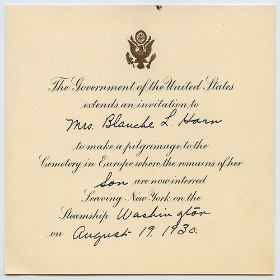 The Government of the United States
extends an invitation to
Mrs. Blanche L. Horn
to make a pilgrimage to the
Cemetery in Europe where the remains of her
Son are now interred
Leaving New York on the
Steamship Washington
on August 19, 1930.